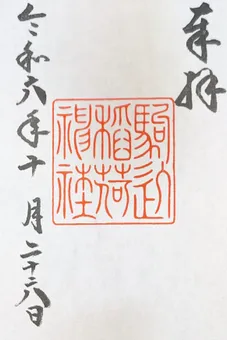 奉拝
駒込
稲荷
神社
令和六年十月二十六日